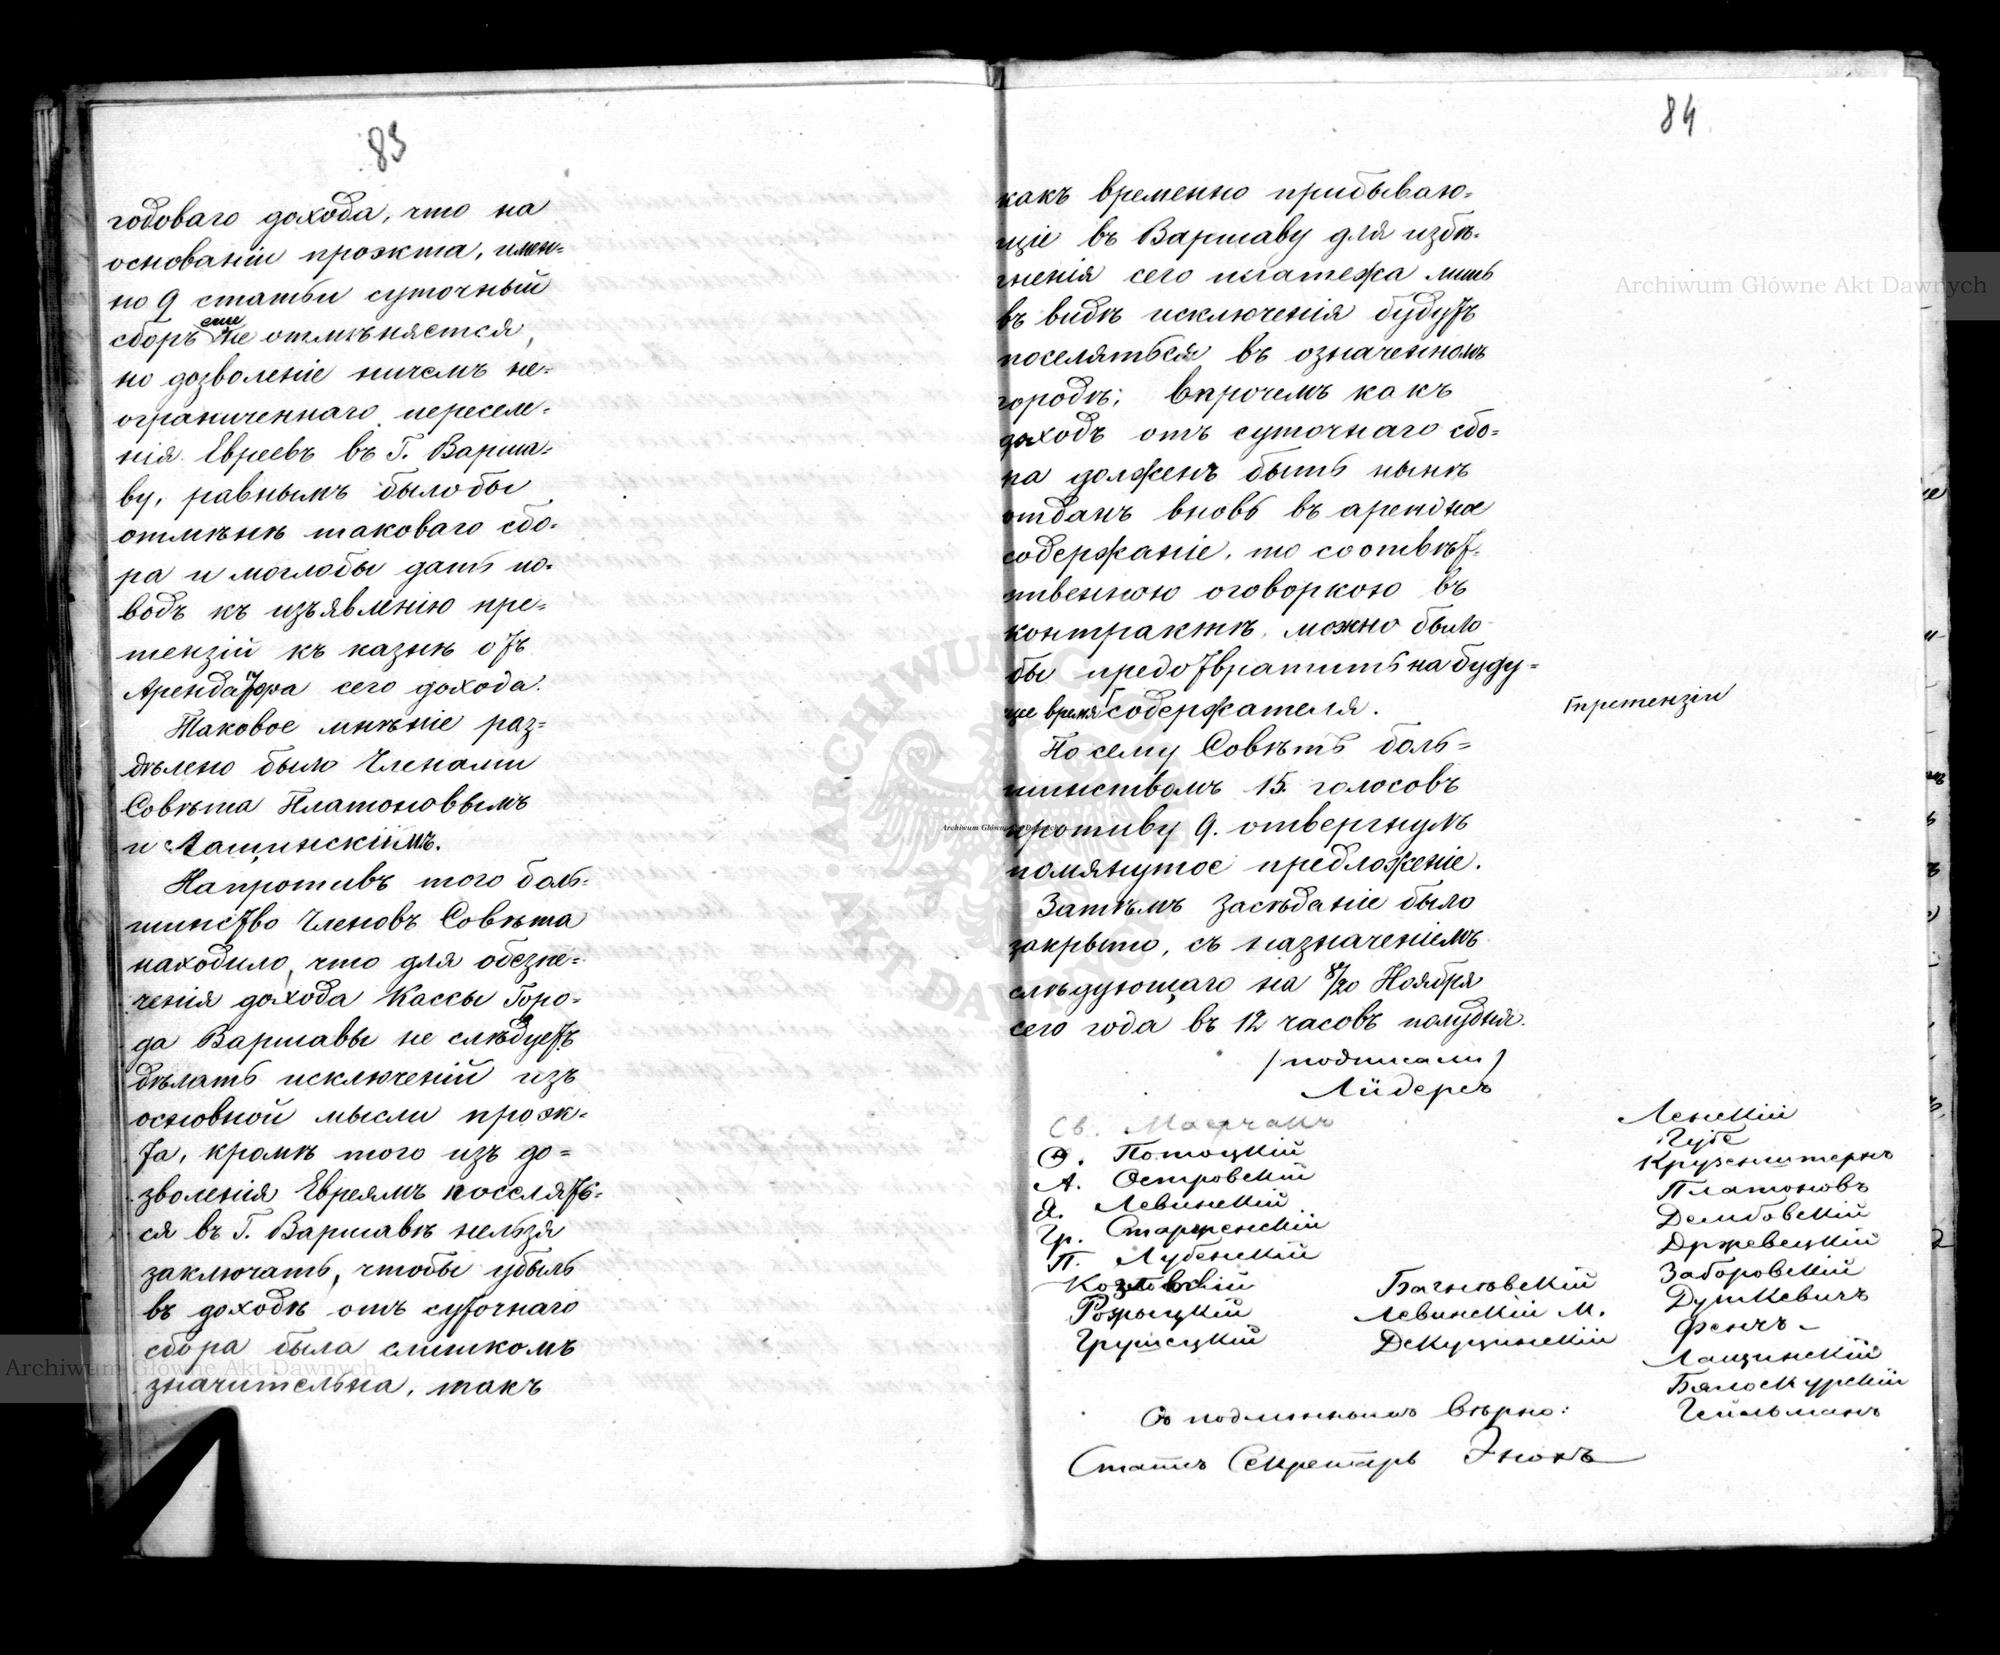 83
годоваго дохода, что на
основаніи проэкта, имен-
но 9 статьи суточный
сборъ еще не отмѣняется,
но дозволеніе ничемъ не-
ограниченнаго переселе-
нія Евреевъ въ Г. Варша-
ву, равнымъ былобы
отмѣнѣ таковаго сбо-
ра и моглобы дать по-
водъ къ изъявленію пре-
тензій къ казнѣ отъ
Арендатора сего дохода.
Таковое мнѣніе раз-
дѣлено было Членами
Совѣта Платоновымъ
и Лащинскимъ.
Напротивъ того боль-
шинство Членовъ Совѣта
находило, что для обезпе-
ченія дохода Кассы Горо-
да Варшавы не слѣдуетъ
дѣлать исключеній изъ
основной мысли проэк-
та, кромѣ того изъ до-
зволенія Евреямъ поселять-
ся въ Г. Варшавѣ нельзя
заключать, чтобы убыль
въ доходѣ отъ суточнаго
сбора была слишкомъ
значительна, такъ
84
какъ временно прибываю-
щіе въ Варшаву для избѣ-
гненія сего платежа лишь
въ видѣ исключенія будутъ
поселяться въ означенномъ
городѣ; впрочемъ какъ
доходъ отъ суточнаго сбо-
ра долженъ быть нынѣ
отданъ вновь въ арендное
содержаніе, то соотвѣт-
ственною оговоркою въ
контрактѣ, можно было
бы предотвратить на буду-
щее время содержателя.
претензіи
По сему Совѣтъ боль-
шинствомъ 15. голосовъ
противу 9. отвергнулъ
помянутое предложеніе.
Затѣмъ засѣданіе было
закрыто, съ назначеніемъ
слѣдующаго на 8/20 Ноября
сего года въ 12 часовъ полудня.
/подписали/
Лидерсъ
Св.
Ѳ. Потоцкій
А. Островскій
Я. Левинскій
Гр. Старженскій
П. Лубенскій
Козловскій
Рожнецкій
Грушецкій
Багневскій
Левинскій М.
Декуцинскій
Ленскій
Губе
Крузенштернъ
Платоновъ
Дембовскій
Држевецкій
Заборовскій
Душкевичъ
Фенчъ
Лащинскій
Бялоскурскій
Гейльманъ
Съ подлиннымъ вѣрно:
Статсъ Секретарь Энохъ
Archiwum Główne Akt Dawnych
Archiwum Główne Akt Dawnych
Archiwum Główne Akt Dawnych
ARCHIWUM GŁÓWNE AKT DAWNYCH